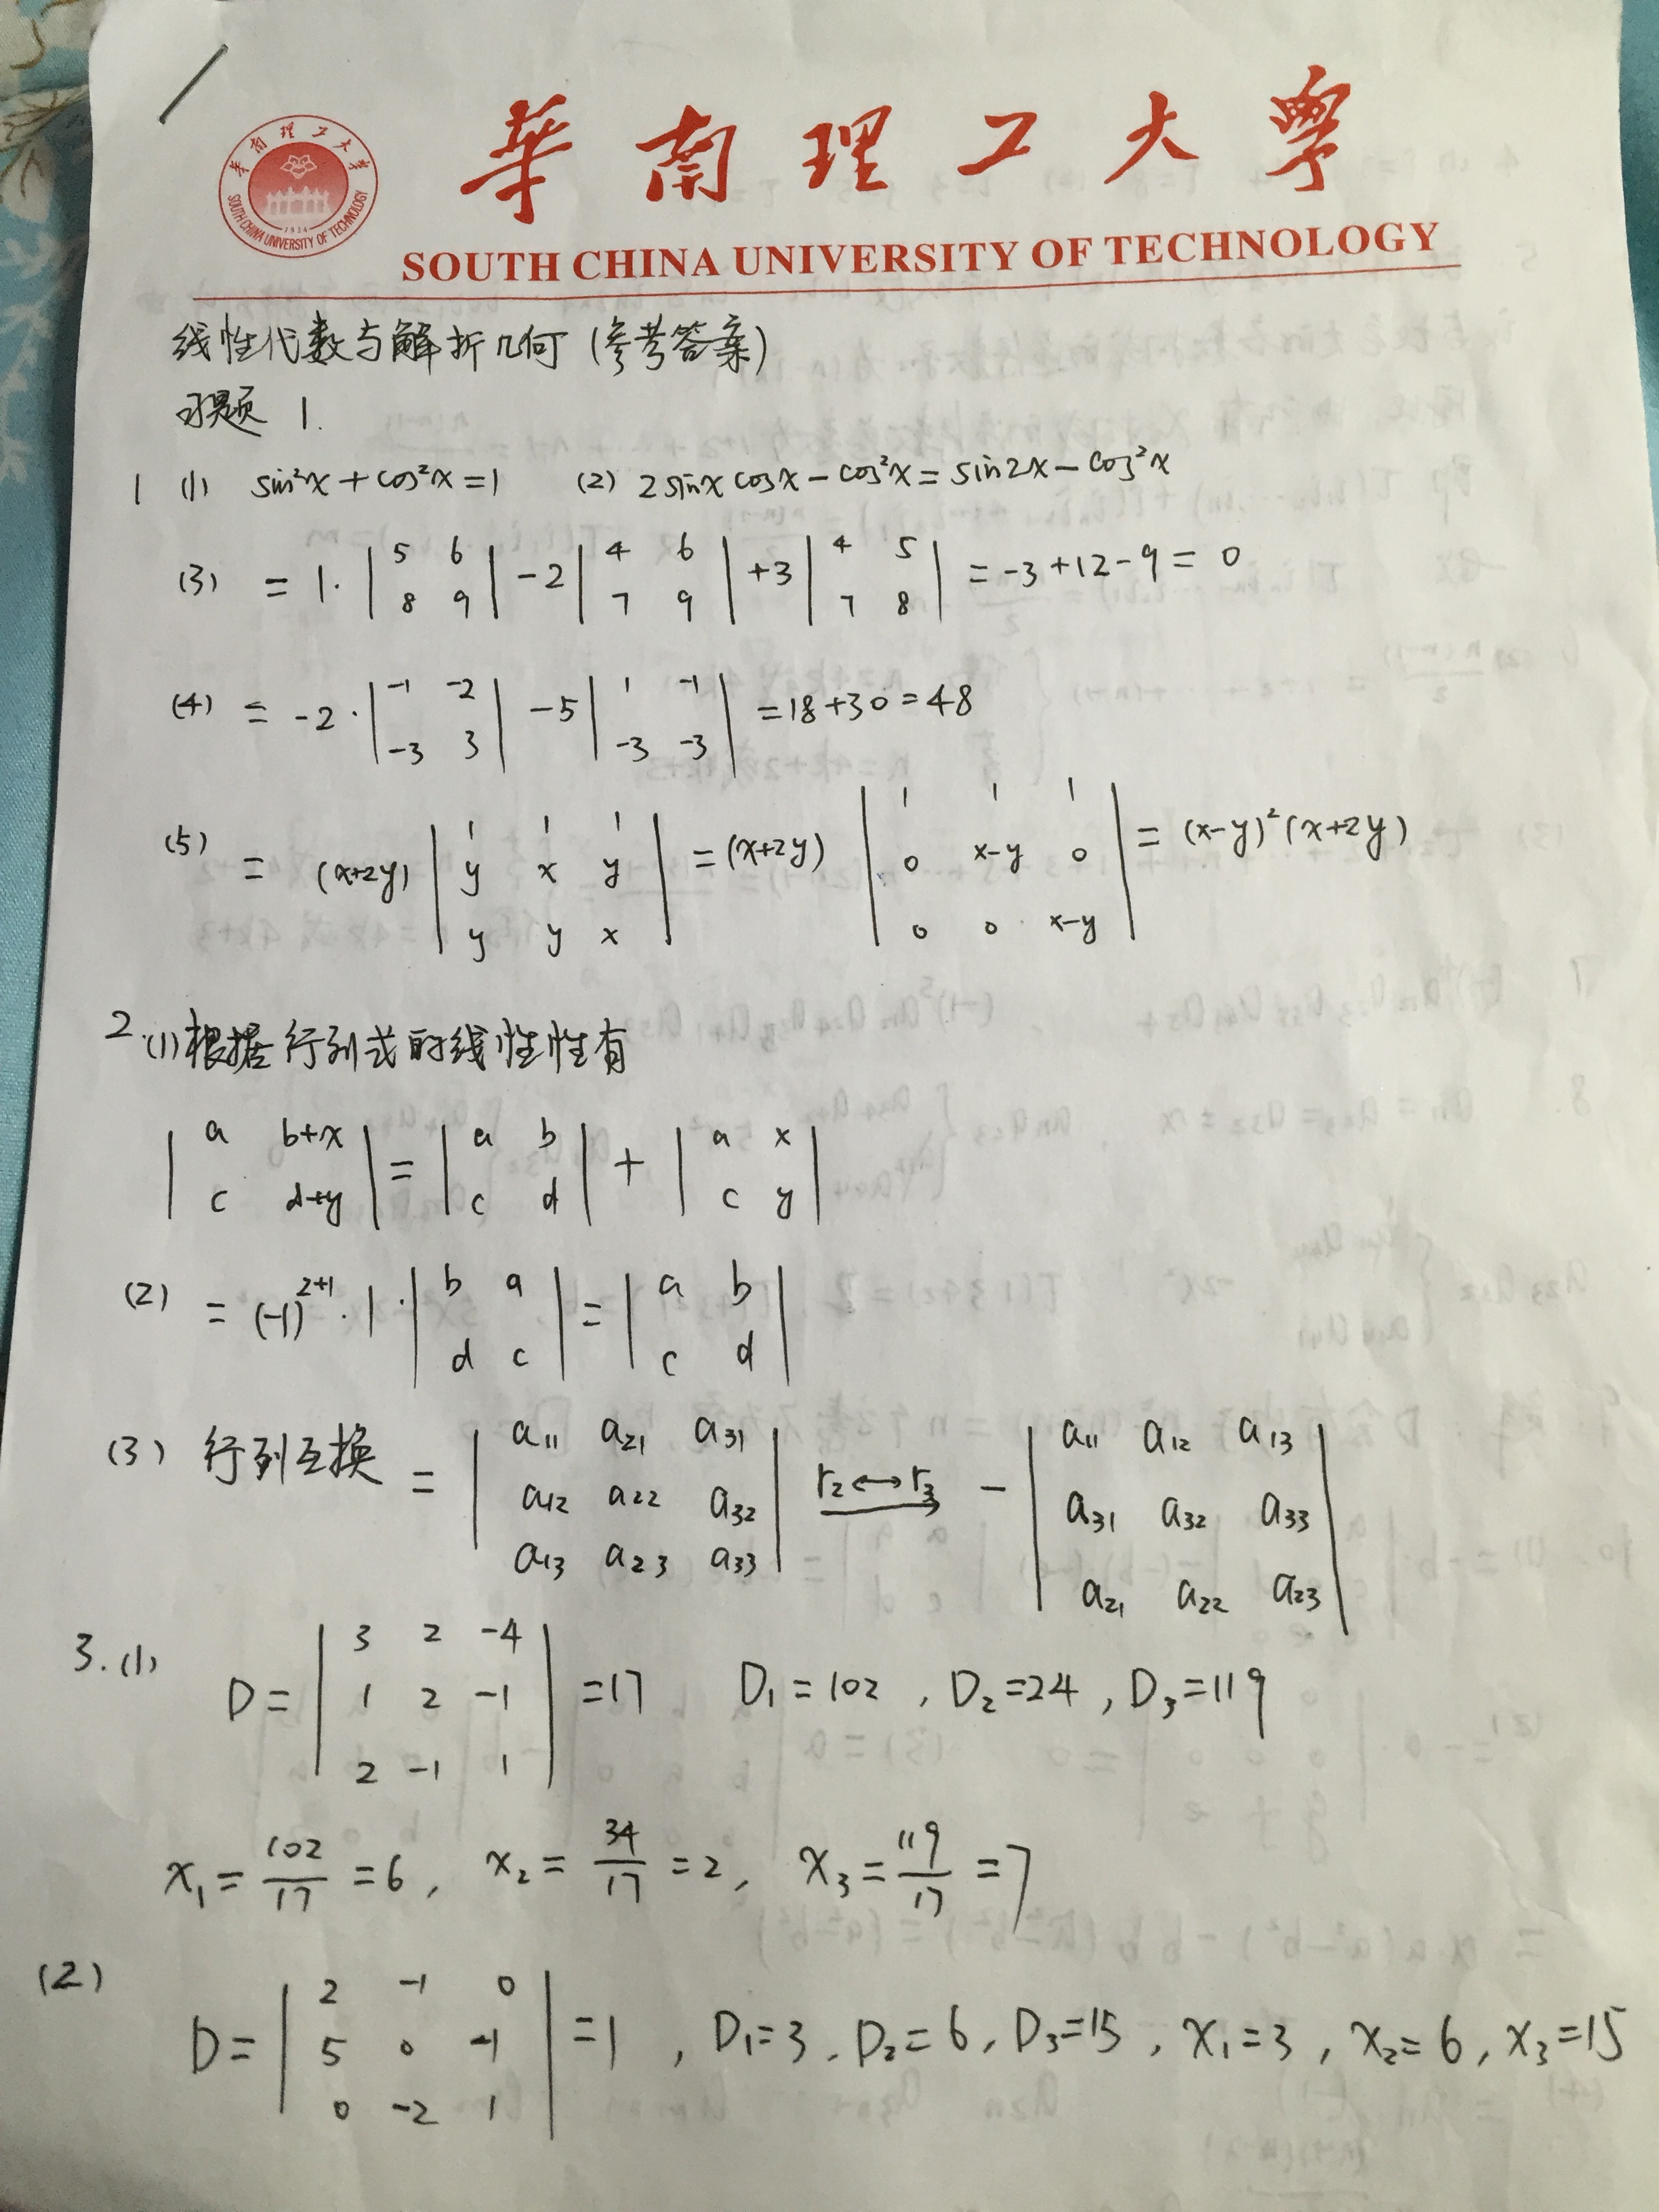 華南理工大學
SOUTH CHINA UNIVERSITY OF TECHNOLOGY
華南理工大學
SOUTH CHINA UNIVERSITY OF TECHNOLOGY
1934
线性代数与解析几何(参考答案)
习题 1.
1 (1) sin²x + cos²x = 1 (2) 2sinx cosx - cos²x = sin2x - cos²x
(3) = 1· | 5 6 ; 8 9 | -2 | 4 6 ; 7 9 | +3 | 4 5 ; 7 8 | = -3+12-9 = 0
(4) = -2· | -1 -2 ; -3 3 | -5 | 1 -1 ; -3 -3 | = 18+30 = 48
(5) = (x+2y) | 1 1 1 ; y x y ; y y x | = (x+2y) | 1 1 1 ; 0 x-y 0 ; 0 0 x-y | = (x-y)²(x+2y)
2.(1)根据行列式的线性性有
| a b+x ; c d+y | = | a b ; c d | + | a x ; c y |
(2) = (-1)²⁺¹·1· | b a ; d c | = | a b ; c d |
(3) 行列互换 = | a₁₁ a₂₁ a₃₁ ; a₁₂ a₂₂ a₃₂ ; a₁₃ a₂₃ a₃₃ | r₂↔r₃ - | a₁₁ a₁₂ a₁₃ ; a₃₁ a₃₂ a₃₃ ; a₂₁ a₂₂ a₂₃ |
3.(1) D = | 3 2 -4 ; 1 2 -1 ; 2 -1 1 | = 17 D₁=102, D₂=24, D₃=119
x₁ = 102/17 = 6, x₂ = 34/17 = 2, x₃ = 119/17 = 7
(2) D = | 2 -1 0 ; 5 0 -1 ; 0 -2 1 | = 1, D₁=3, D₂=6, D₃=15, x₁=3, x₂=6, x₃=15